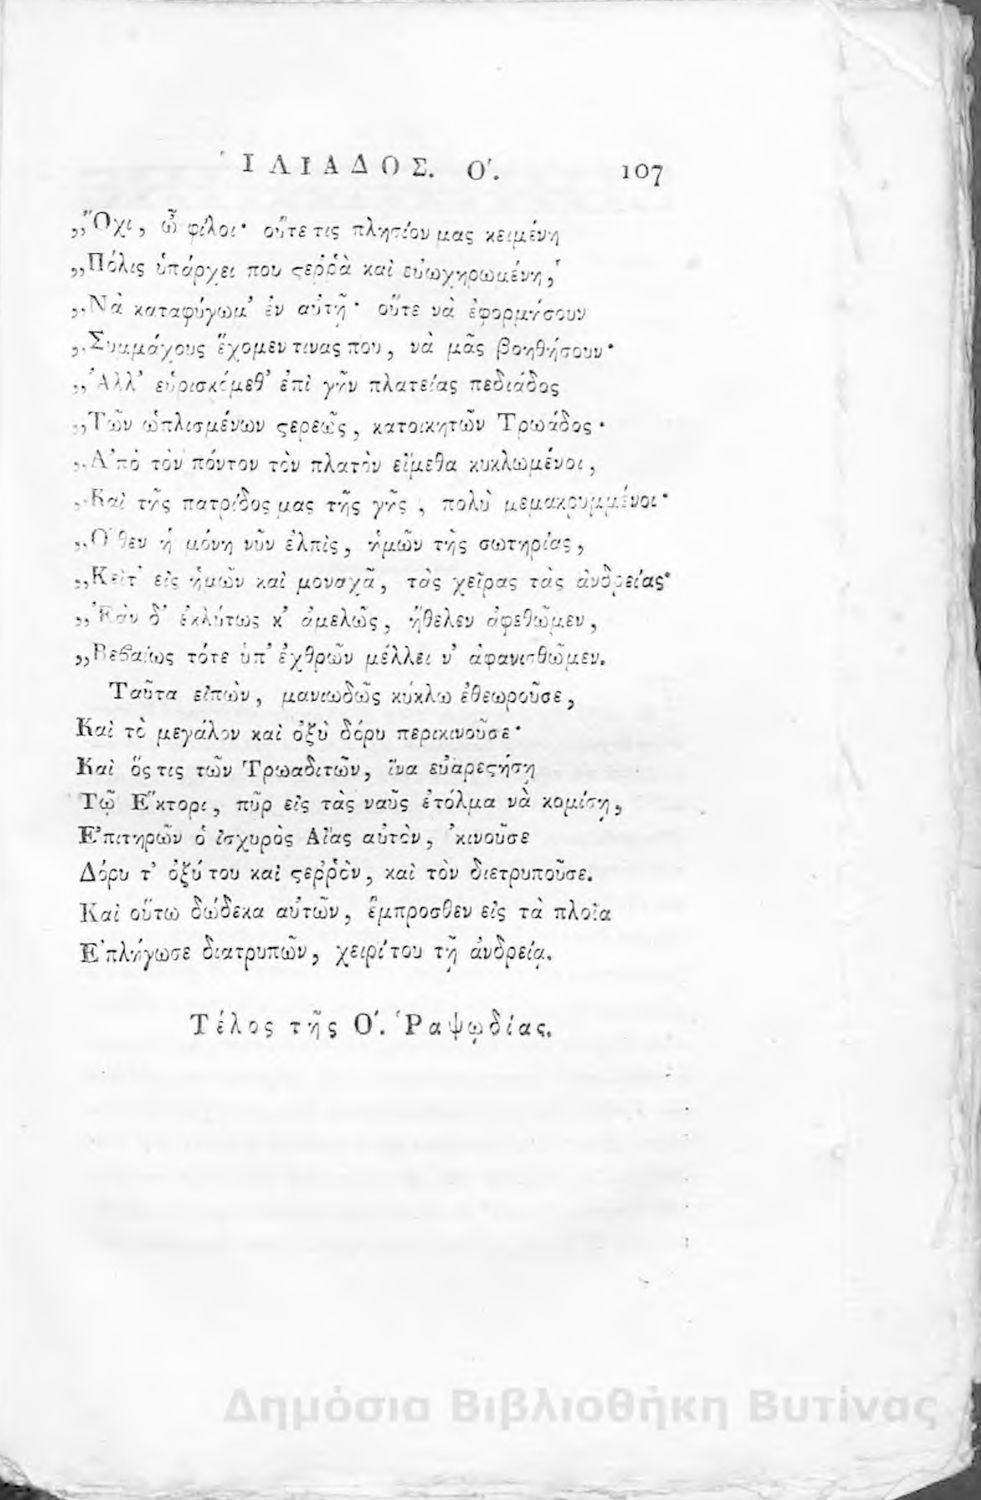 ἸΛΙΑΔΟΣ. Ο΄. 107
„Ὄχι, ὦ φίλοι· οὔτε τις πλησίον μας κειμένη
„Πόλις ὑπάρχει που ϛεῤῥὰ καὶ εὐωχηρωμένη,
„Νὰ καταφύγωμ' ἐν αὐτῇ· οὔτε νὰ ἐφορμήσουν
„Συμμάχους ἔχομεν τινας που, νὰ μᾶς βοηθήσουν·
„Ἀλλ' εὑρισκόμεθ' ἐπὶ γῆν πλατείας πεδιάδος
„Τῶν ὡπλισμένων ϛερεῶς, κατοικητῶν Τρωάδος·
„Ἀπὸ τὸν πόντον τὸν πλατὺν εἴμεθα κυκλωμένοι,
„Καὶ τῆς πατρίδος μας τῆς γῆς, πολὺ μεμακρυμμένοι·
„Ὅθεν ἡ μόνη νῦν ἐλπὶς, ἡμῶν τῆς σωτηρίας,
„Κεῖτ' εἰς ἡμῶν καὶ μοναχᾶ, τὰς χεῖρας τὰς ἀνδρείας·
„Ἐὰν δ' ἐκλύτως κ' ἀμελῶς, ἤθελεν ἀφεθῶμεν,
„Βεβαίως τότε ὑπ' ἐχθρῶν μέλλει ν' ἀφανισθῶμεν.
Ταῦτα εἰπὼν, μανιωδῶς κύκλῳ ἐθεωροῦσε,
Καὶ τὸ μεγάλον καὶ ὀξὺ δόρυ περικινοῦσε·
Καὶ ὅς τις τῶν Τρωαδιτῶν, ἵνα εὐαρεϛήσῃ
Τῷ Ἕκτορι, πῦρ εἰς τὰς ναῦς ἐτόλμα νὰ κομίσῃ,
Ἐπιτηρῶν ὁ ἰσχυρὸς Αἴας αὐτὸν, 'κινοῦσε
Δόρυ τ' ὀξύ του καὶ ϛεῤῥὸν, καὶ τὸν διετρυποῦσε.
Καὶ οὕτω δώδεκα αὐτῶν, ἔμπροσθεν εἰς τὰ πλοῖα
Ἐπλήγωσε διατρυπῶν, χειρί του τῇ ἀνδρείᾳ.
Τέλος τῆς Ο΄. Ῥαψῳδίας.
Δημόσια Βιβλιοθήκη Βυτίνας